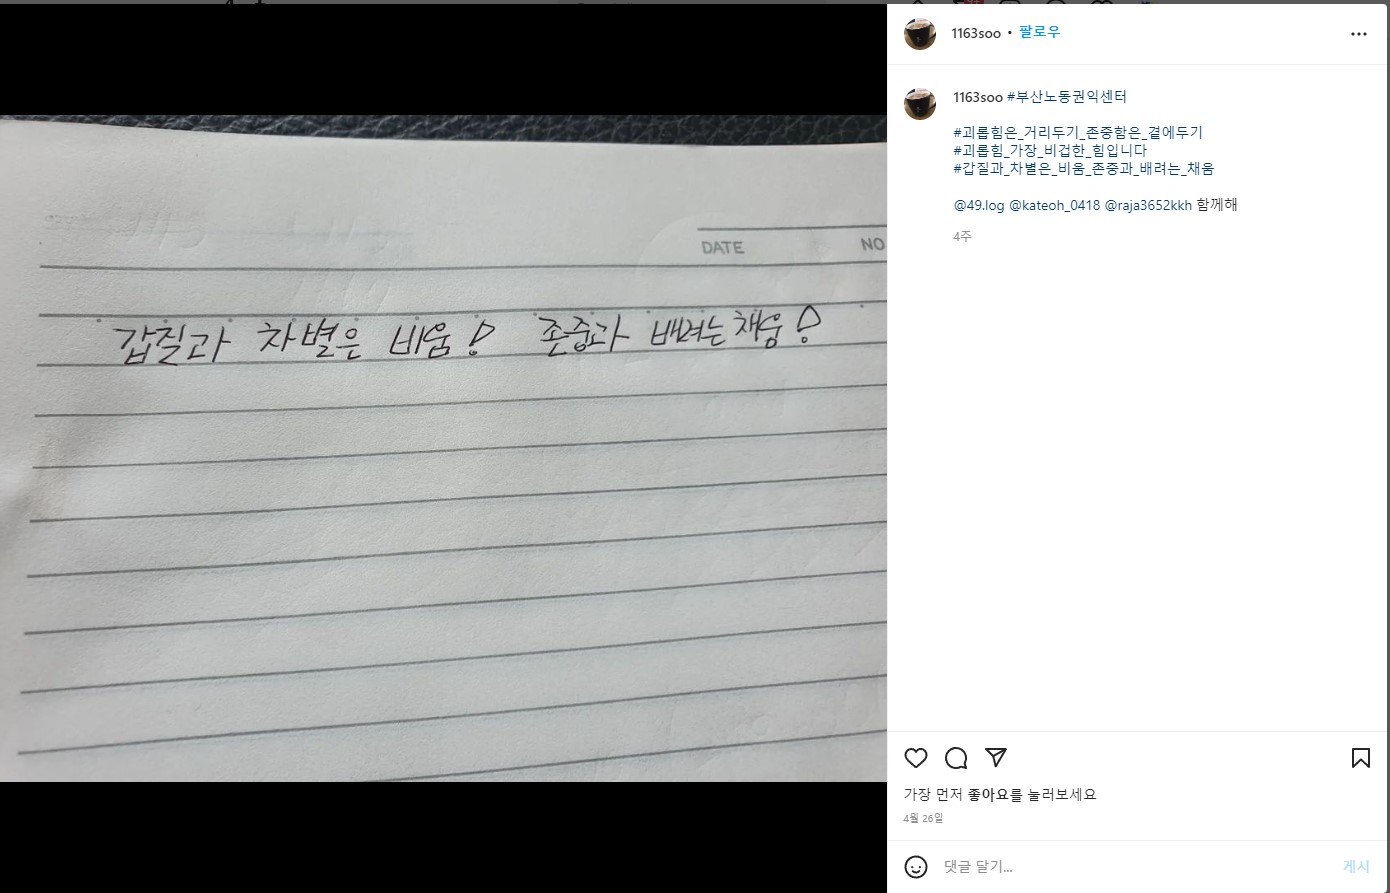 1163soo • 팔로우
1163soo #부산노동권익센터
#괴롭힘은_거리두기_존중함은_곁에두기
#괴롭힘_가장_비겁한_힘입니다
#갑질과_차별은_비움_존중과_배려는_채움
@49.log @kateoh_0418 @raja3652kkh 함께해
4주
DATE NO
갑질과 차별은 비움! 존중과 배려는 채움!
가장 먼저 좋아요를 눌러보세요
4월 26일
댓글 달기... 게시